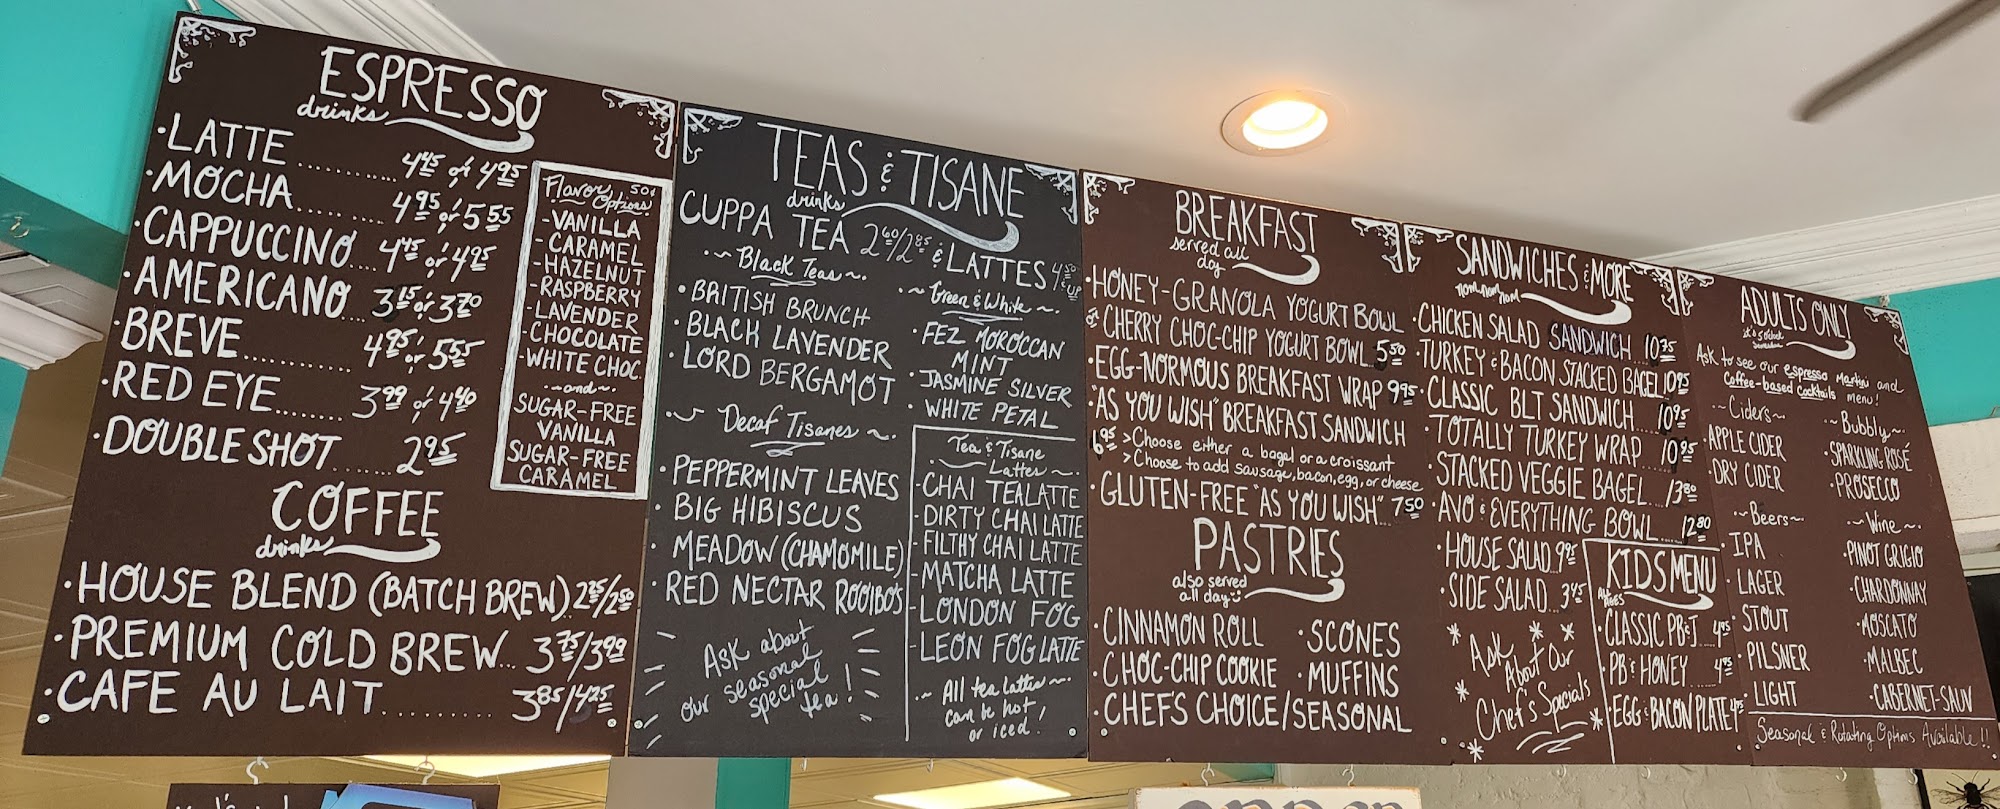 ESPRESSO
drinks
·LATTE .......... 4.45 or 4.95
·MOCHA ........ 4.95 or 5.55
·CAPPUCCINO.... 4.45 or 4.95
·AMERICANO... 3.15 or 3.70
·BREVE........ 4.95 or 5.55
·RED EYE....... 3.99 or 4.40
·DOUBLE SHOT ...... 2.95
Flavor Options 50¢
-VANILLA
-CARAMEL
-HAZELNUT
-RASPBERRY
-LAVENDER
-CHOCOLATE
-WHITE CHOC.
~and~
SUGAR-FREE
VANILLA
SUGAR-FREE
CARAMEL
COFFEE
drinks
·HOUSE BLEND (BATCH BREW)..
·PREMIUM COLD BREW... 3.75/3.99
·CAFE AU LAIT ......... 3.85/4.25
TEAS & TISANE
drinks
CUPPA TEA 2.60/2.85 & LATTES 4.50 & UP
~Black Teas~
·BRITISH BRUNCH
·BLACK LAVENDER
·LORD BERGAMOT
~Decaf Tisanes~
·PEPPERMINT LEAVES
·BIG HIBISCUS
·MEADOW (CHAMOMILE)
·RED NECTAR ROOIBOS
Ask about
our seasonal
special
tea!
~Green & White~
·FEZ MOROCCAN
MINT
·JASMINE SILVER
·WHITE PETAL
Tea & Tisane
~Lattes~
-CHAI TEA LATTE
-DIRTY CHAI LATTE
-FILTHY CHAI LATTE
-MATCHA LATTE
-LONDON FOG
-LEON FOG LATTE
~All tea lattes~
can be hot
or iced!
BREAKFAST
served all
day
·HONEY-GRANOLA YOGURT BOWL
or CHERRY CHOC-CHIP YOGURT BOWL 5.50
·EGG-NORMOUS BREAKFAST WRAP 9.95
·"AS YOU WISH" BREAKFAST SANDWICH
6.95 >Choose either a bagel or a croissant
>Choose to add sausage, bacon, egg, or cheese
·GLUTEN-FREE "AS YOU WISH"... 7.50
PASTRIES
also served
all day
·CINNAMON ROLL ·SCONES
·CHOC-CHIP COOKIE ·MUFFINS
·CHEF'S CHOICE/SEASONAL
SANDWICHES & MORE
nom nom nom
·CHICKEN SALAD SANDWICH ..10.35
·TURKEY & BACON STACKED BAGEL 10.95
·CLASSIC BLT SANDWICH ... 10.95
·TOTALLY TURKEY WRAP .. 10.95
·STACKED VEGGIE BAGEL ..13.80
·AVO & EVERYTHING BOWL .. 12.80
·HOUSE SALAD 9.95
·SIDE SALAD.. 3.45
Ask
About Our
Chef's Specials
KIDS MENU
ALL AGES
·CLASSIC PB&J .. 4.95
·PB & HONEY ... 4.75
·EGG & BACON PLATE
ADULTS ONLY
it's 5 o'clock somewhere
Ask to see our espresso martini and
Coffee-based Cocktails menu!
~Ciders~
·APPLE CIDER
·DRY CIDER
~Beers~
·IPA
·LAGER
·STOUT
·PILSNER
·LIGHT
~Bubbly~
·SPARKLING ROSÉ
·PROSECCO
~Wine~
·PINOT GRIGIO
·CHARDONNAY
·MOSCATO
·MALBEC
·CABERNET-SAUV
Seasonal & Rotating Options Available!!